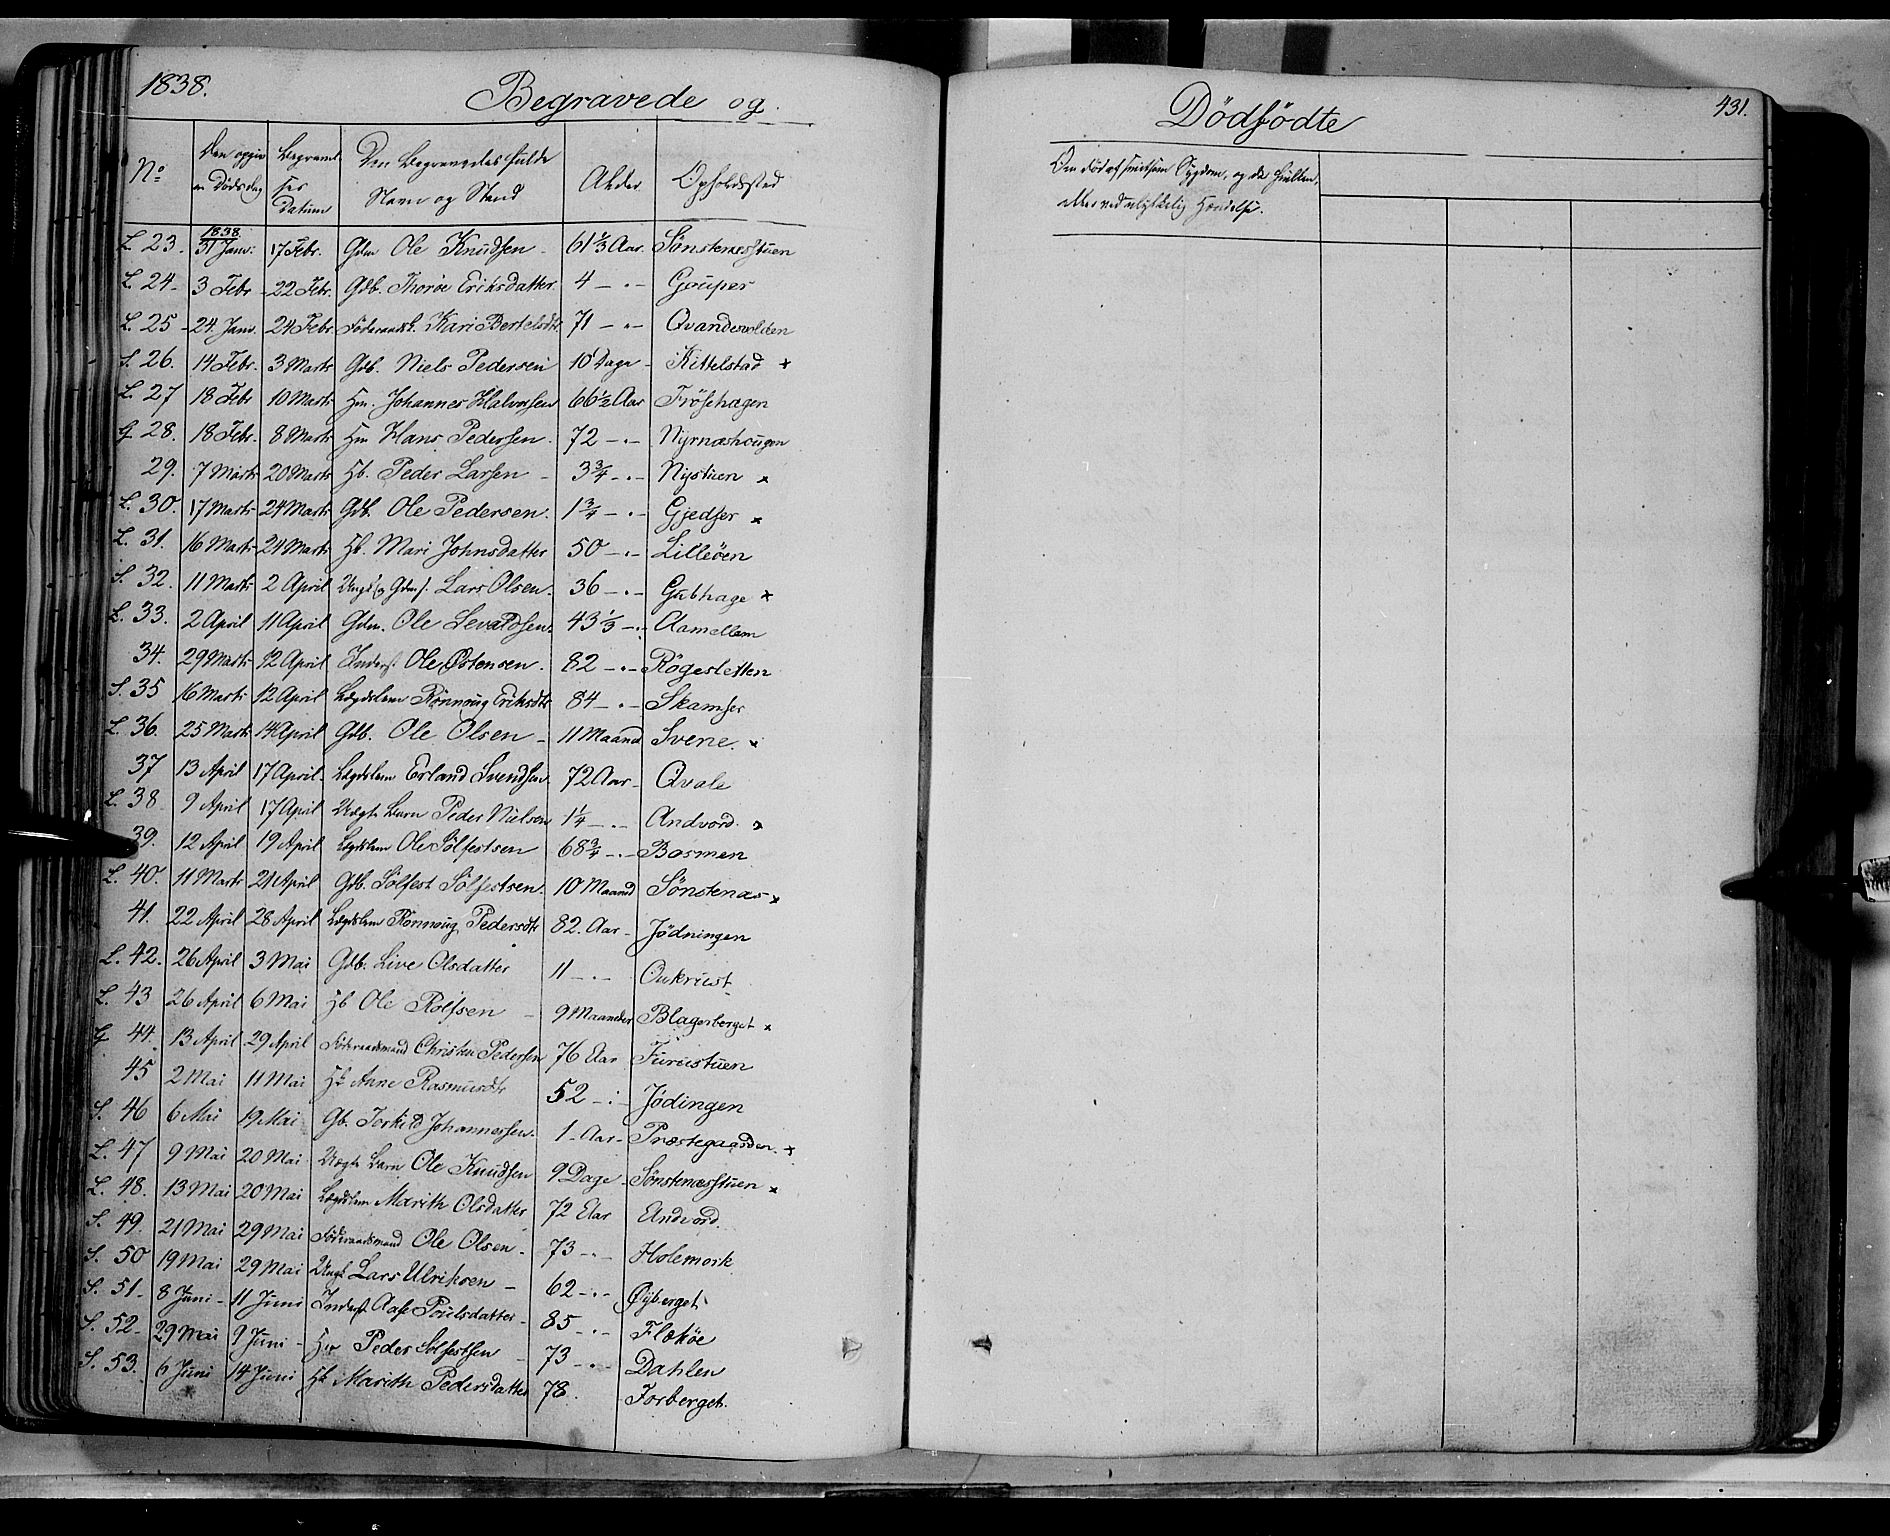 1838. Begravede og Dödfödte 431.
No Den opgivne Dödsdag Begravelses Datum Den Begravedes fulde Navn og Stand Alder Opholdssted Om död af smitsom Sygdom, og da hvilken, eller ved ulykkelig Hændelse.
1838.
L. 23. 31 Janv. 17 Febr. Gdm Ole Knudsen 61 1/3 Aar Sønstenæsstuen
L. 24 3 Febr 22 Febr. Gdb. Thoröe Eriksdatter 4 -"- Gouper
L. 25 24 Janv. 24 Febr Föderaadsk. Kari Bertelsdtr 71 -"- Qvandesvolden
S. 26. 14 Febr. 3 Marts Gdb. Niels Pedersen 10 Dage Kittelstad x
L. 27 18 Febr 10 Marts Hm. Johannes Halvorsen 66 1/2 Aar Fröshagen
G 28. 18 Febr. 8 Marts Hm Hans Pedersen 72 -"- Nyrnæshougen
29. 7 Marts 20 Marts Hb. Peder Larsen 3 3/4 -"- Nystuen x
L. 30. 17 Marts 24 Marts Gdb. Ole Pedersen. 1 3/4 -"- Gjedser x
L. 31. 16 Marts 24 Marts Hb. Mari Johnsdatter 50 -"- Lilleöen
S. 32. 11 Marts 2 April Lars Olsen. 36 -"- Gubhage x
L. 33. 2 April 11 April Gdm. Ole Levardsen. 43 1/3 -"- Aamellem
34. 29 Marts 12 April Inderst Ole Östensen. 82 -"- Rögesletten
S. 35 16 Marts 12 April Lægdslem Rönnoug Eriksdtr 84 -"- Skamser
L. 36. 25 Marts 14 April Gdb. Ole Olsen 11 Maaned Svene. x
37 13 April 17 April. Lægdslem Erland Svendsen 72 Aar Qvale
L. 38 9 April 17 April Uægte Barn Peder Nielsen 1 1/4 -"- Andvord. x
39. 12 April 19 April Lægdslem Ole Sölfestsen 68 3/4 -"- Basmen
L. 40. 11 Marts 21 April Gdb. Sölfest Sölfestsen 10 Maaned Sønstenæs x
41. 22 April 28 April Lægdslem Rönnoug Pedersdtr 82. Aar Jödningen
L. 42. 26 April 3 Mai Gdb. Live Olsdatter 11 -"- Oukrust
L. 43 26 April 6 Mai Hb Ole Rolfsen 9 Maaneder Blagerberget x
G 44. 13 April 29 April Föderaadsmand Christen Pedersen 76 Aar Furustuen
45 2 Mai 11 Mai Hk Anne Rasmusdtr 52 -"- Jödingen
S. 46 6 Mai 19 Mai Gb. Torkild Johannessen 1 Aar Præstegaarden x
L. 47 9 Mai 20 Mai Uægte Barn Ole Knudsen 9 Dage Sønstenæsstuen x
L. 48. 13 Mai 20 Mai Lægdslem Marith Olsdatter 72 Aar Andvord.
S. 49. 21 Mai 29 Mai Föderaadsmand Ole Olsen 73 -"- Holemork
S. 50 19 Mai 29 Mai Ungk Lars Ulriksen 62 -"- Øyberget
S. 51. 8 Juni 11 Juni Inderst Aase Poulsdatter 85 -"- Flækøe
S. 52. 29 Mai 9 Juni Hm Peder Sölfestsen 73 -"- Dahlen
S. 53. 6 Juni 14 Juni Hk Marith Pedersdatter 78. Forberget.